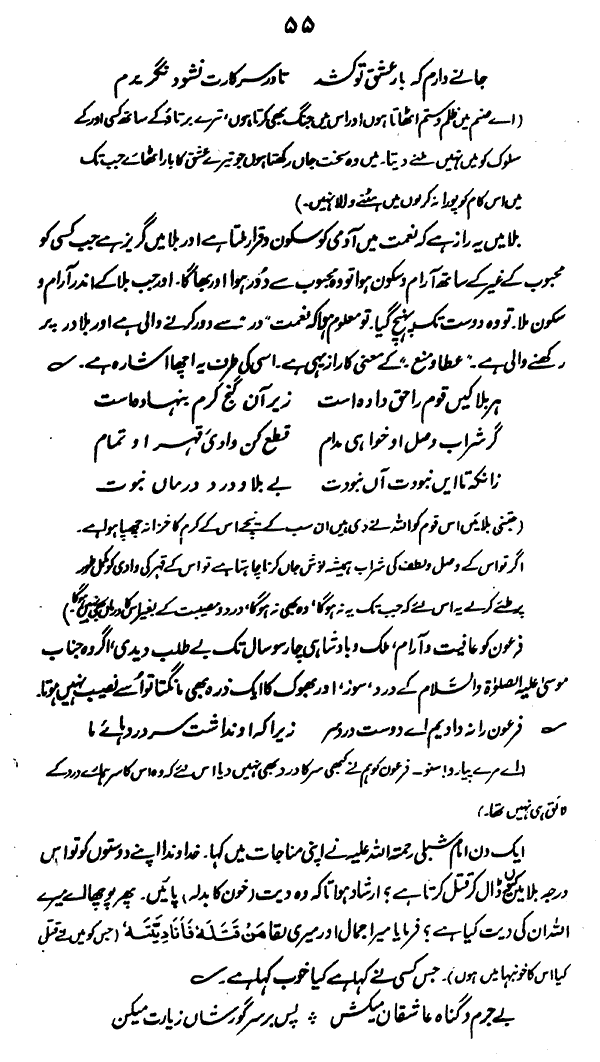 ۵۵
جانے دارم کہ بار عشق تو کشد تا در سر کارت نشود نگریزم
(اے صنم میں ظلم و ستم اٹھاتا ہوں اور اس میں جنگ بھی کرتا ہوں، تیرے برتاؤ کے ساتھ کسی اور کے
سلوک کو میں نہیں ملنے دیتا۔ میں وہ سخت جان رکھتا ہوں جو تیرے عشق کا بار اٹھائے جب تک
میں اس کام کو پورا نہ کر لوں میں ہٹنے والا نہیں۔)
بلا میں یہ راز ہے کہ نعمت میں آدمی کو سکون و قرار ملتا ہے اور بلا میں گریز ہے جب کسی کو
محبوب کے غیر کے ساتھ آرام و سکون ہوا تو وہ محبوب سے دُور ہوا اور بھاگا۔ اور جب بلا کے اندر آرام و
سکون ملا۔ تو وہ دوست تک پہنچ گیا۔ تو معلوم ہوا کہ نعمت "در" سے دور کرنے والی ہے اور بلا در پر
رکھنے والی ہے۔ "عطا و منع" کے معنی کا راز یہی ہے۔ اسی کی طرف یہ اچھا اشارہ ہے۔ ؎
ہر بلا کیں قوم را حق دادہ است زیر آن گنج کرم بنہادہ است
گر شراب وصل او خواہی مدام قطع کن وادیٔ قہر او تمام
زانکہ تا ایں نبودت آں نبودت بے بلا و درد درماں نبوت
(جتنی بلائیں اس قوم کو اللہ نے دی ہیں ان سب کے نیچے اس کے کرم کا خزانہ چھپا ہوا ہے۔
اگر تو اس کے وصل و لطف کی شراب ہمیشہ نوش جاں کرنا چاہتا ہے تو اس کے قہر کی وادی کو مکمل طور
پر طے کر لے یہ اس لئے کہ جب تک یہ نہ ہوگا، وہ بھی نہ ہوگا، درد و مصیبت کے بغیر اس کا درماں بھی نہیں ہوگا)
فرعون کو عافیت و آرام، ملک و بادشاہی چار سو سال تک بے طلب دیدی، اگر وہ جناب
موسیٰ علیہ الصلوٰۃ والسّلام کے درد، سوز، اور بھوک کا ایک ذرہ بھی مانگتا تو اُسے نصیب نہیں ہوتا۔
؎ فرعون را نہ دادیم اے دوست دردسر زیرا کہ او نداشت سر درد ہائے ما
(اے مرے پیارو! سنو۔ فرعون کو ہم نے کبھی سر کا درد بھی نہیں دیا اس لئے کہ وہ اس کا سر ہمارے درد کے
لائق ہی نہیں تھا۔)
ایک دن امام شبلی رحمۃ اللہ علیہ نے اپنی مناجات میں کہا۔ خداوندا اپنے دوستوں کو تو اس
درجہ بلا میں کیوں ڈال کر قتل کرتا ہے؟ ارشاد ہوتا کہ وہ دیت (خون کا بدلہ) پائیں۔ پھر پوچھا اے میرے
اللہ ان کی دیت کیا ہے؟ فرمایا میرا جمال اور میری لقا مَنْ قَتَلَہٗ فَاَنَا دِیَتُہٗ (جس کو میں نے قتل
کیا اس کا خونبہا میں ہوں)۔ جس کسی نے کہا ہے کیا خوب کہا ہے۔ ؎
بے جرم و گناہ عاشقان میکش پس بر سر گور شاں زیارت میکن